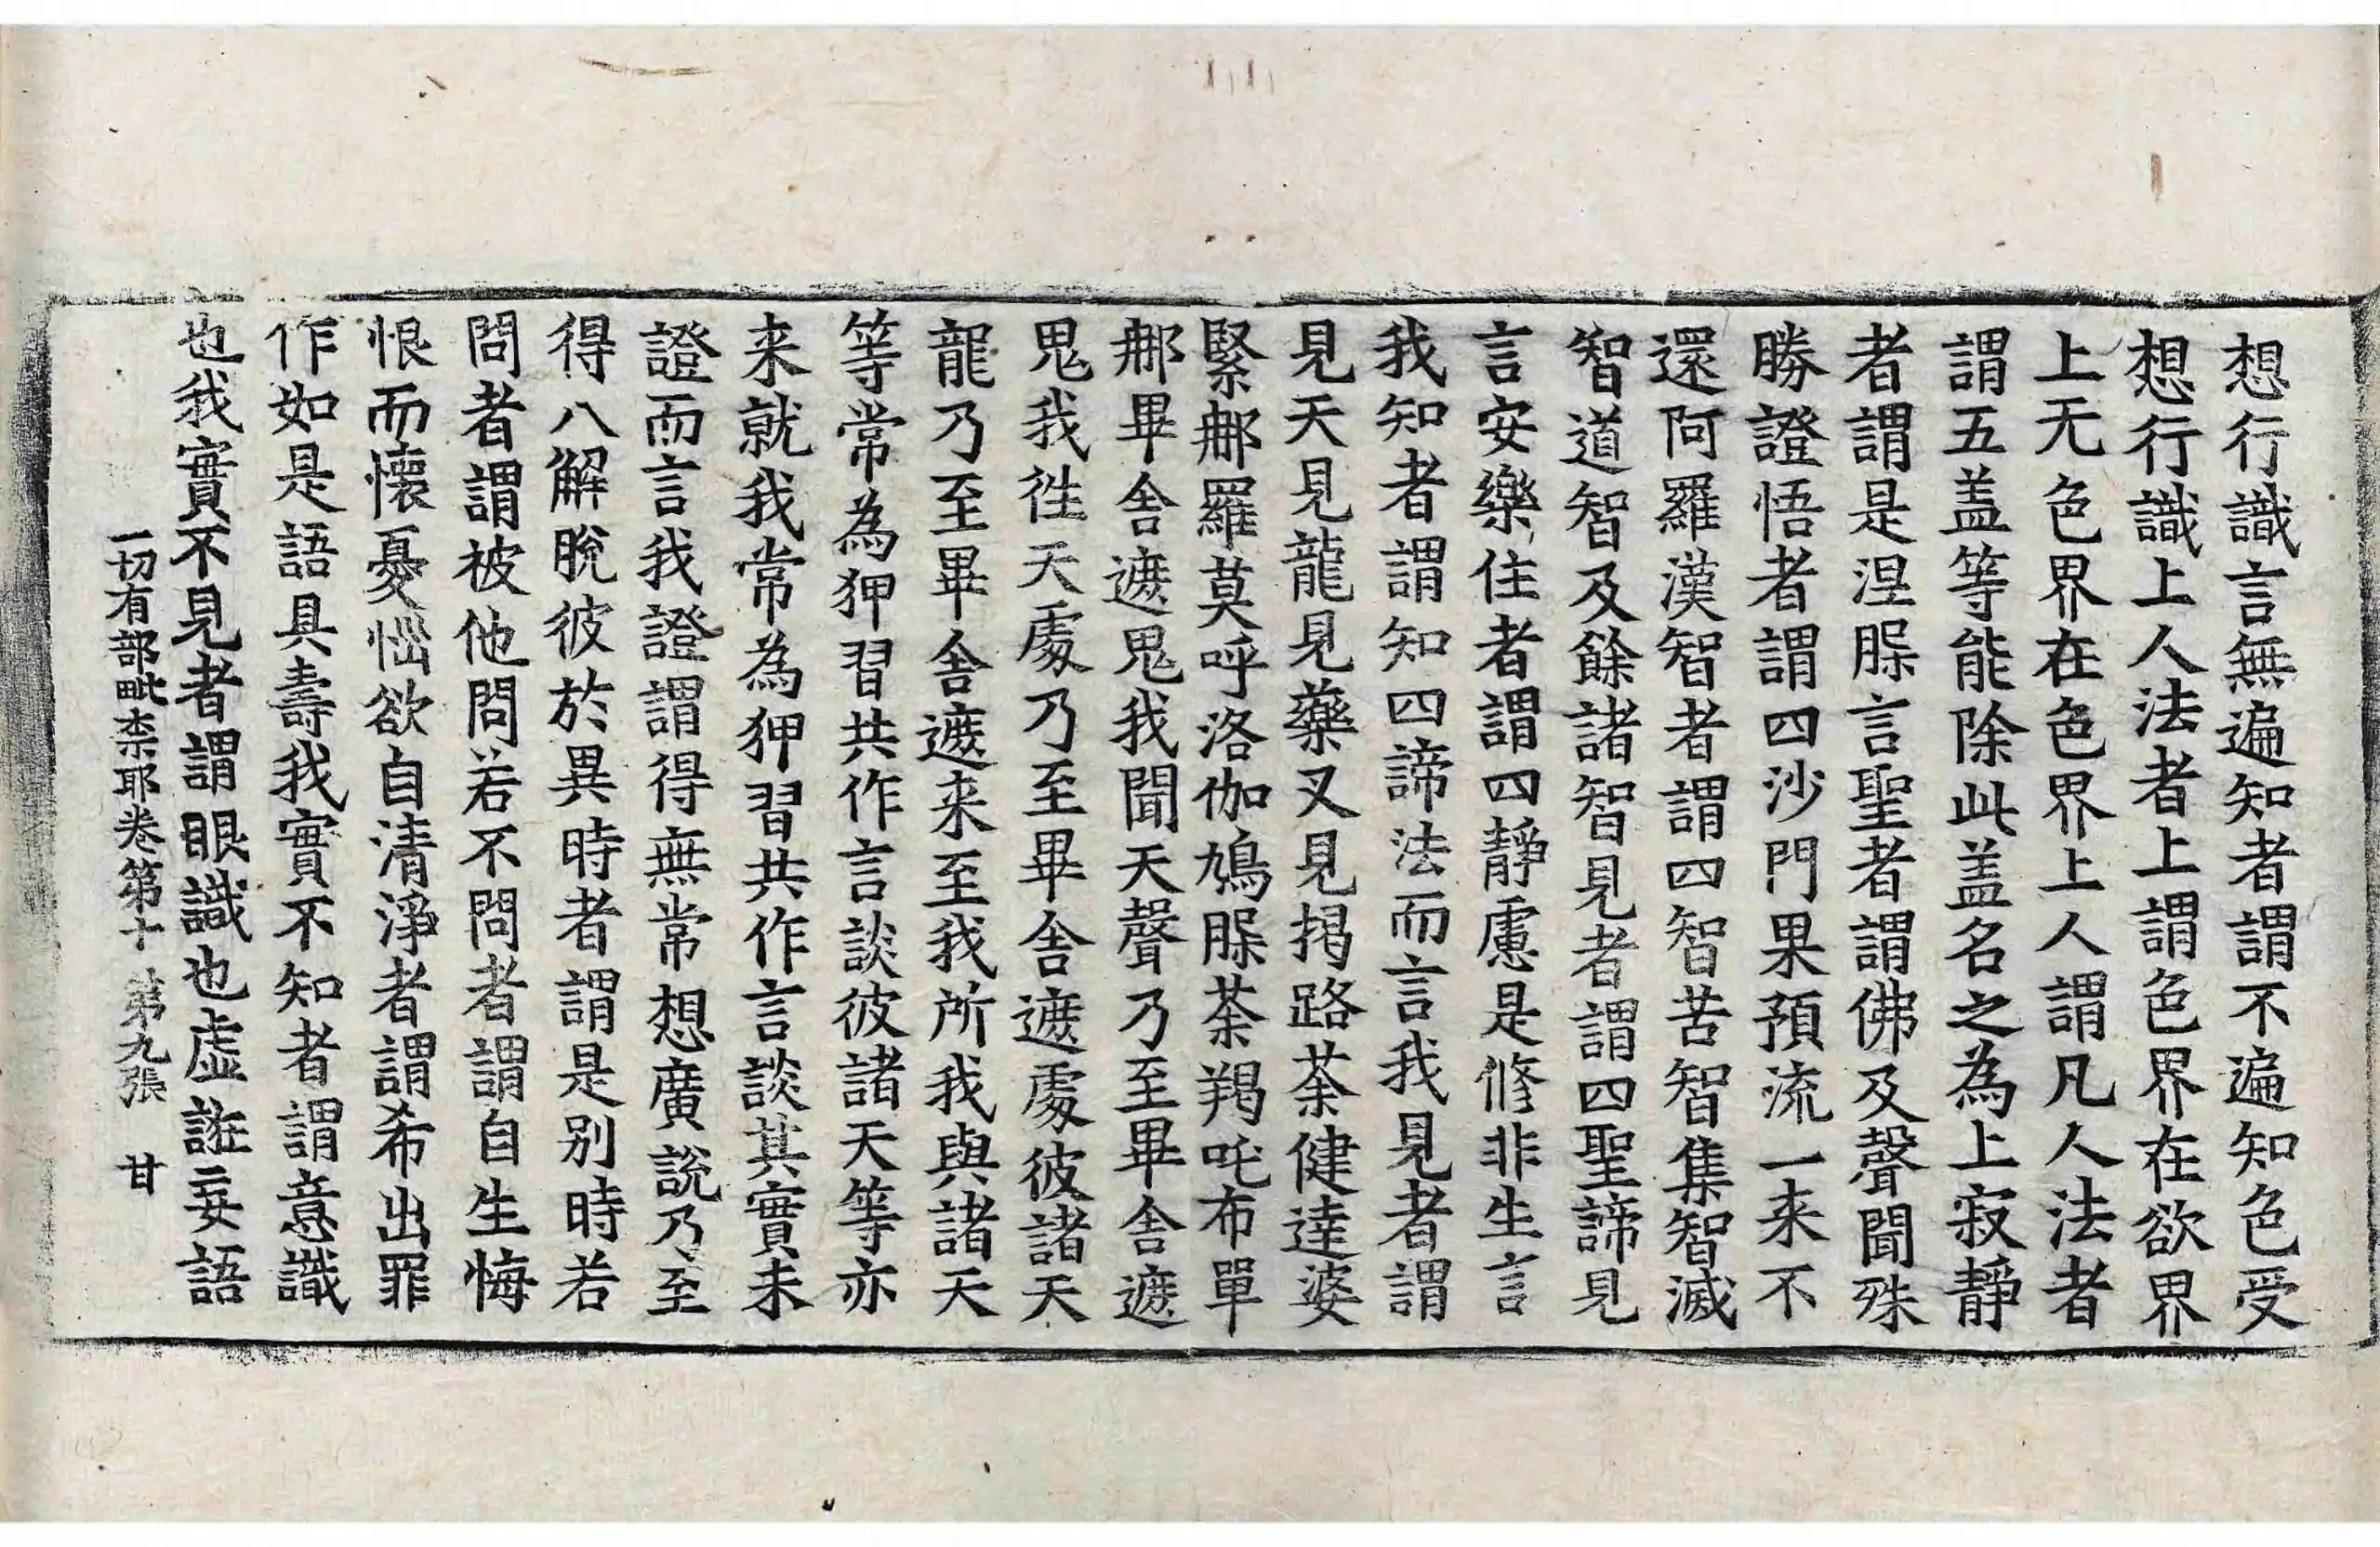 想行識言無遍知者謂不遍知色受
想行識上人法者上謂色界在欲界
上无色界在色界上人謂凡人法者
謂五盖等能除此盖名之為上寂靜
者謂是涅脲言聖者謂佛及聲聞殊
勝證悟者謂四沙門果預流一来不
還阿羅漢智者謂四智苦智集智滅
智道智及餘諸智見者謂四聖諦見
言安樂住者謂四靜慮是修非生言
我知者謂知四諦法而言我見者謂
見天見龍見藥叉見揭路荼健達婆
緊那羅莫呼洛伽鳩脲荼羯吒布單
那畢舍遮鬼我聞天聲乃至畢舍遮
鬼我徃天處乃至畢舍遮處彼諸天
龍乃至畢舍遮来至我所我與諸天
等常為狎習共作言談彼諸天等亦
来就我常為狎習共作言談其實未
證而言我證謂得無常想廣說乃至
得八解脫彼於異時者謂是別時若
問者謂被他問若不問者謂自生悔
恨而懷憂惱欲自清淨者謂希出罪
作如是語具壽我實不知者謂意識
也我實不見者謂眼識也虛誑妄語
一切有部毗柰耶卷第十 第九張 甘